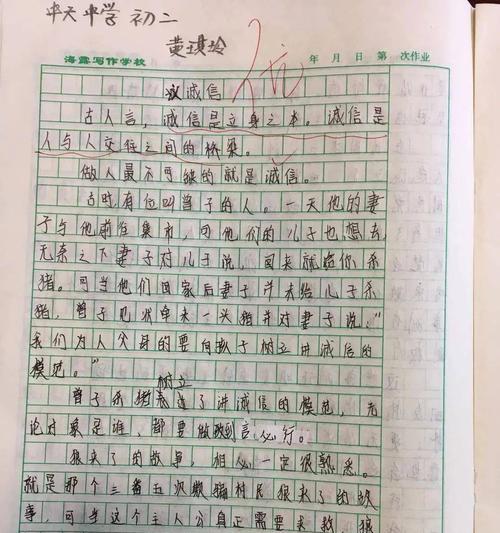 中天中学 初二
黄璟玲
海露写作学校 年 月 日 第 次作业
议诚信
古人言，诚信是立身之本。诚信是
人与人交往之间的桥梁。
做人最不可缺的就是诚信。
古时，有位叫曾子的人。一天他的妻
子与他前往集市，可他们的儿子也想去，
无奈之下妻子对儿子说，回来就给你杀
猪。可当他们回家后妻子并未给儿子杀
猪，曾子见状牵来一头猪并对妻子说："
我们为人父母的要向孩子树立讲诚信的
模范。"
树立
曾子杀猪了讲诚信的模范，无
论对象是谁，都要做到言必行。
狼来了的故事，相必一定很熟悉。
就是那个三番五次欺骗村民狼来了的故
事，可当这个主人公真正需要求救，狼